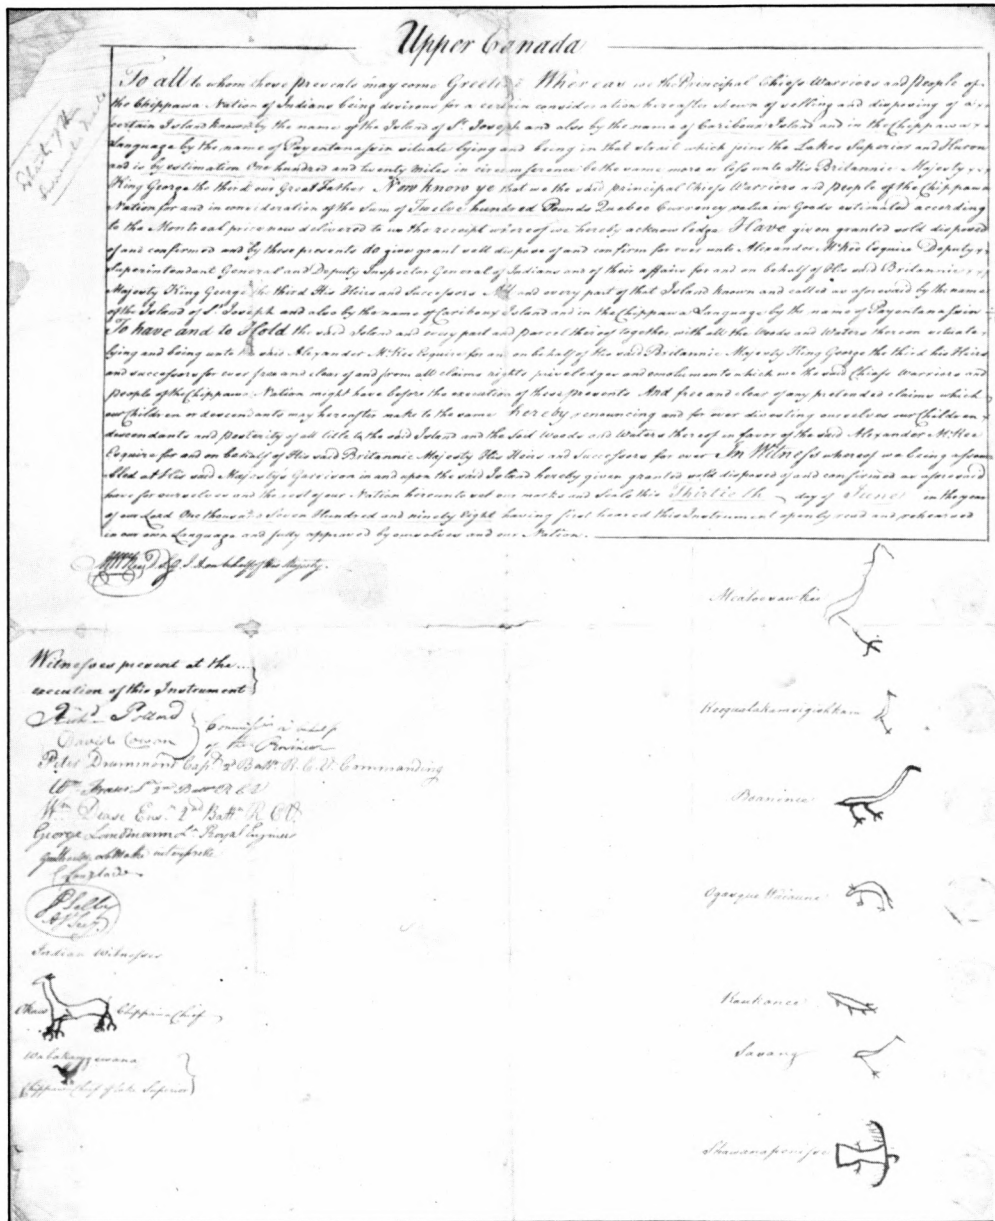 Upper Canada
To all to whom these presents may come Greeting Whereas we the Principal Chiefs Warriors and People of
the Chippawa Nation of Indians being desirous for a certain consideration hereafter shewn of selling and disposing of a
certain Island known by the name of the Island of St. Joseph and also by the name of Cariboux Island and in the Chippawa
Language by the name of Payentanassin situate lying and being in that strait which joins the Lakes Superior and Huron
and is by estimation One hundred and twenty Miles in circumference be the same more or less unto His Britannic Majesty
King George the third our Great Father Now know ye that we the said principal Chiefs Warriors and People of the Chippawa
Nation for and in consideration of the Sum of Twelve hundred Pounds Quebec Currency value in Goods estimated according
to the Montreal price now delivered to us the receipt whereof we hereby acknowledge Have given granted sold disposed
of and confirmed and by these presents do give grant sell dispose of and confirm for ever unto Alexander McKee Esquire Deputy
Superintendant General and Deputy Inspector General of Indians and of their affairs for and on behalf of His said Britannic
Majesty King George the third His Heirs and Successors All and every part of that Island known and called as aforesaid by the name
of the Island of St. Joseph and also by the name of Cariboux Island and in the Chippawa Language by the name of Payentanassin
To have and to Hold the said Island and every part and parcel thereof together with all the Woods and Waters thereon situate
lying and being unto the said Alexander McKee Esquire for an on behalf of His said Britannic Majesty King George the third his Heirs
and successors for ever free and clear of and from all claims rights priviledges and emoluments which we the said Chiefs Warriors and
people of the Chippawa Nation might have before the execution of these presents And free and clear of any pretended claims which
our Children or descendants may hereafter make to the same hereby renouncing and for ever divesting ourselves our Children
descendants and Posterity of all title to the said Island and the Woods and Waters thereof in favor of the said Alexander McKee
Esquire for and on behalf of His said Britannic Majesty His Heirs and Successors for ever In Witness whereof we being assem
bled at His said Majesty's Garrison in and upon the said Island hereby given granted sold disposed of and confirmed as aforesaid
have for ourselves and the rest of our Nation hereunto set our marks and Seals this Thirtieth day of June in the year
of our Lord One thousand Seven Hundred and ninety Eight having first heared this Instrument openly read and rehearsed
in our own Language and fully approved by ourselves and our Nation
on behalf of His Majesty.
Witnesses present at the
execution of this Instrument
Richd. Pollard
David Cowan
of the Province
Peter Drummond Capt. 2d Battn. R. C. V. Commanding
Wm. Fraser Lt 2nd Battn R C V
Wm. Dease Ensn. 2nd Battn R C V.
George Landmann Lt. Royal Engineer
Langlade
P. Selby
Indian Witnesses
Okaw Chippawa Chief
Wabakangewana
Chippawa Chief of Lake Superior
Meatoosawkee
Boanince
Ogasque
Kaukonce
Sawang